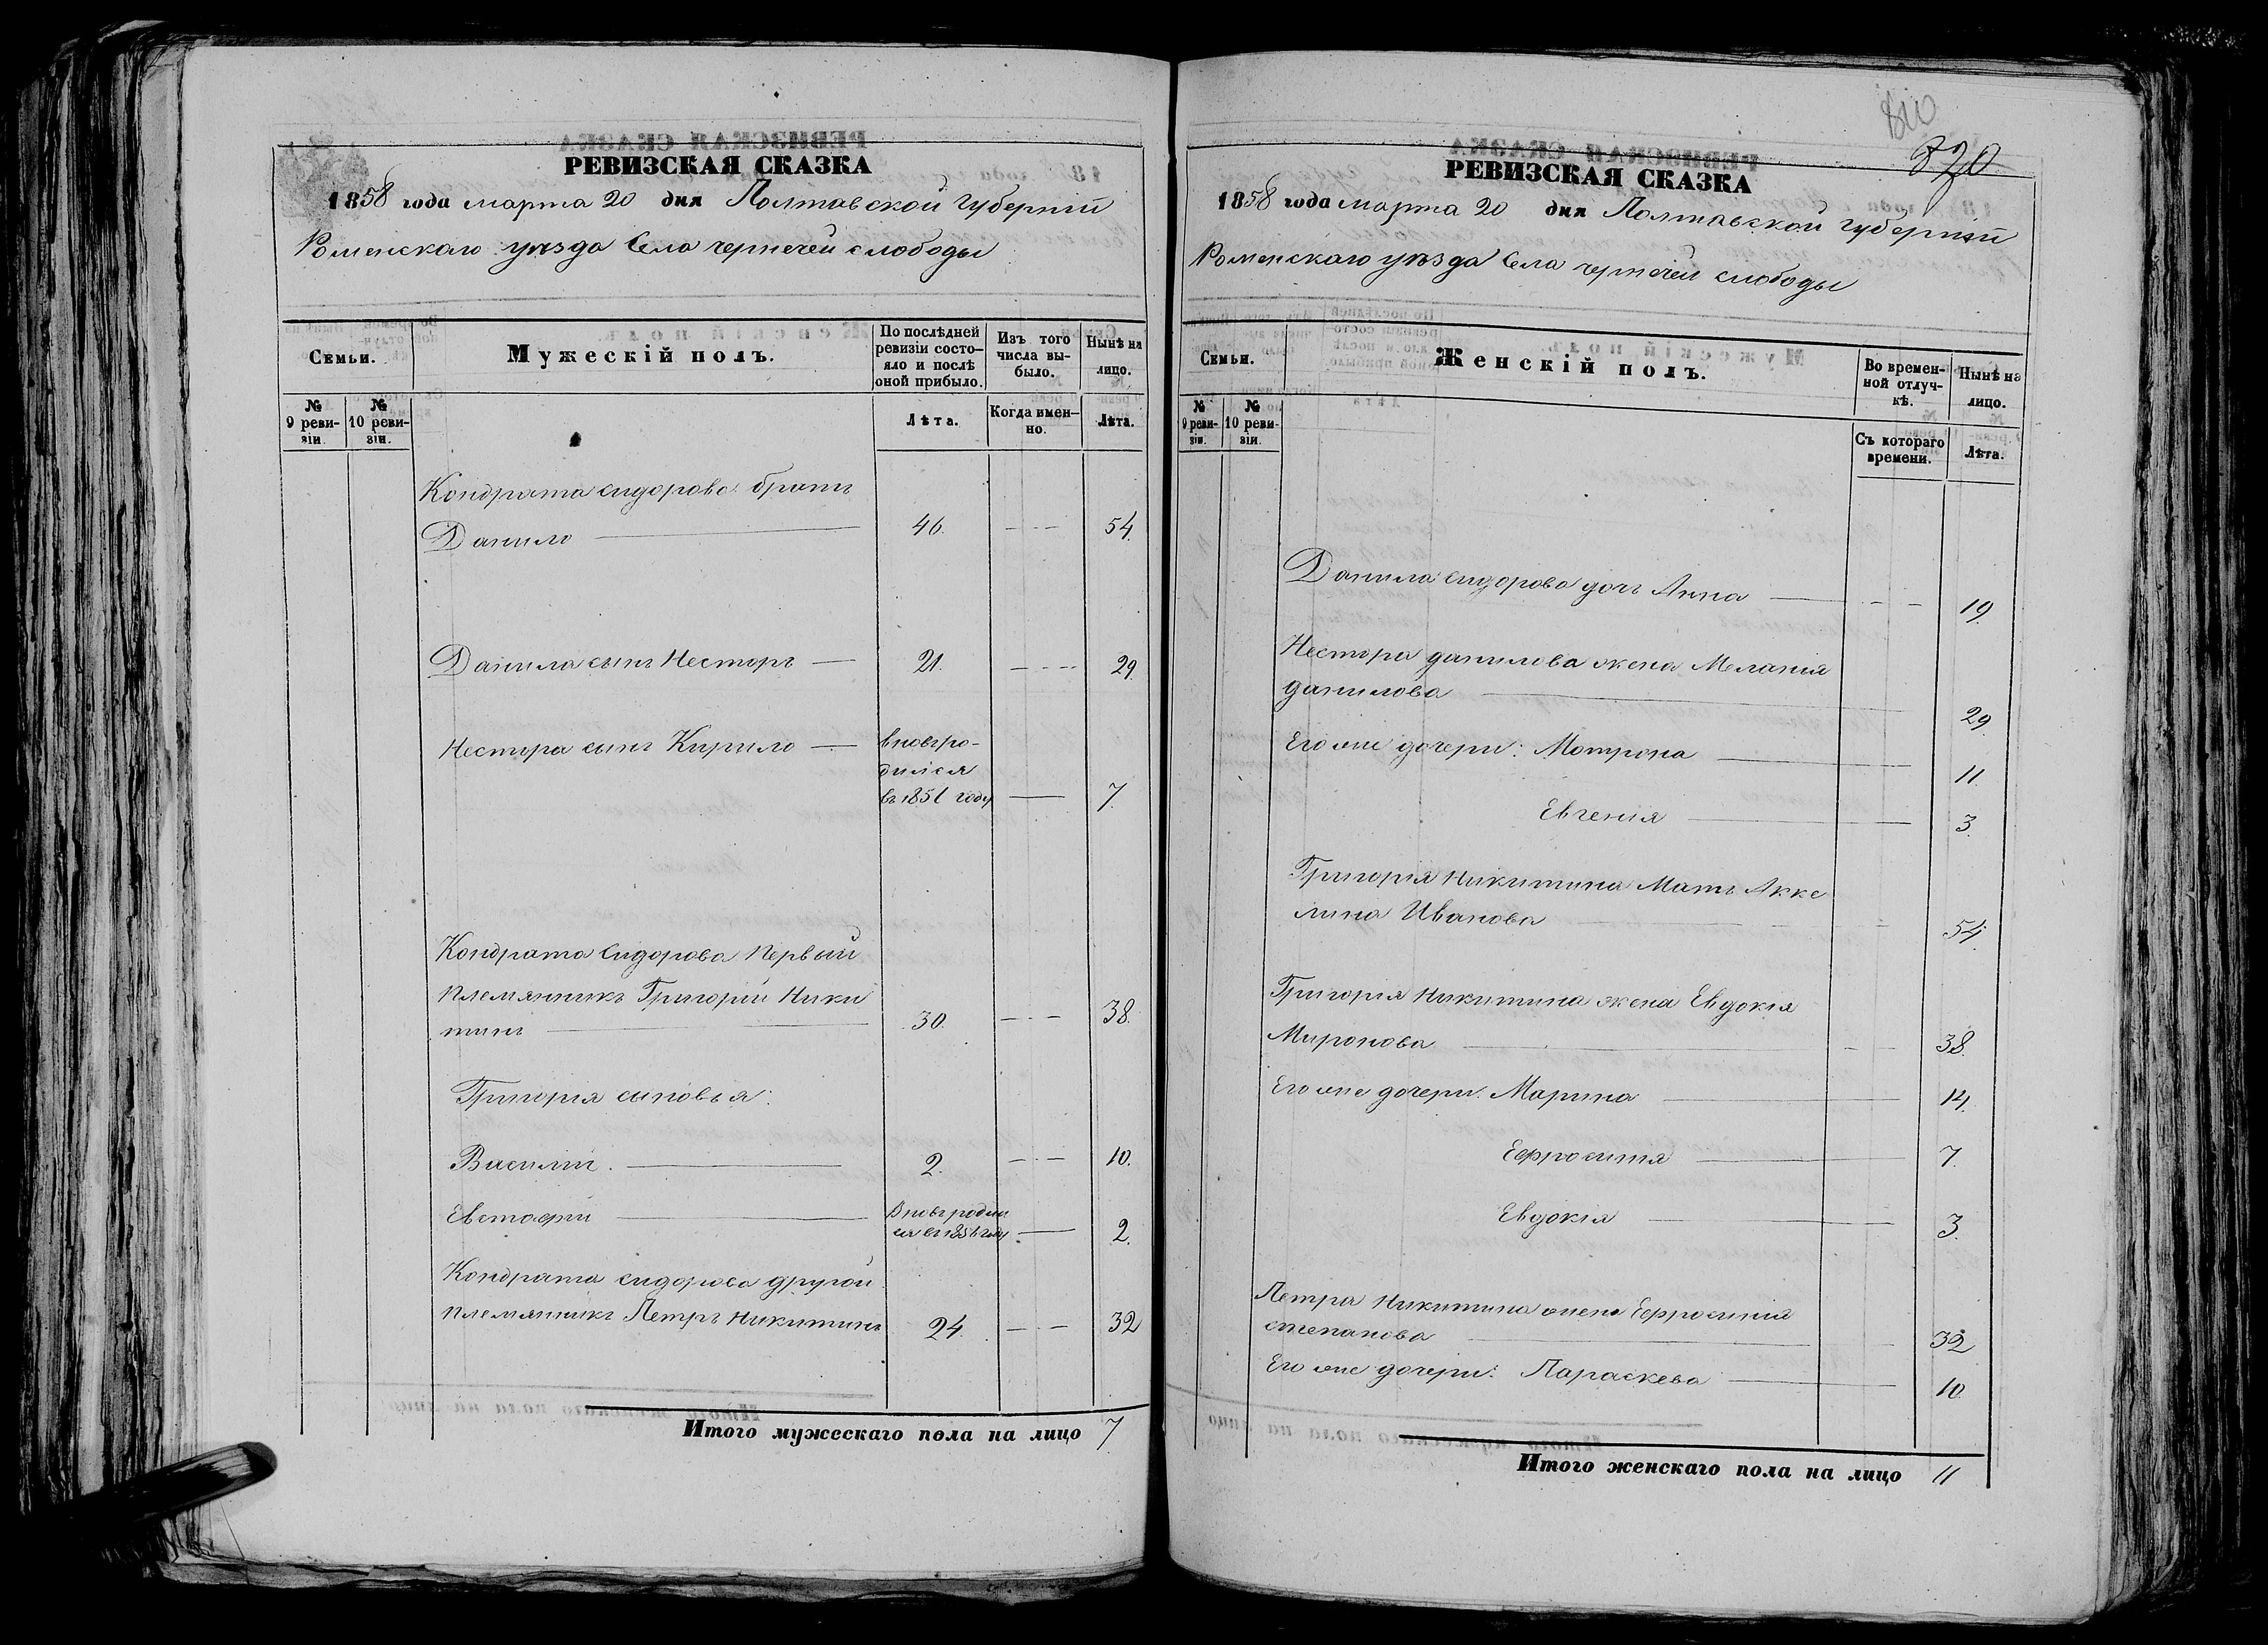 РЕВИЗСКАЯ СКАЗКА
1858 года марта 20 дня Полтавской губерніи
Роменскаго уѣзда Села чернечей слободы
Семьи.
Мужескій полъ.
По послѣдней ревизіи состо-
яло и послѣ
оной прибыло.
Изъ того
числа вы-
было.
Нынѣ на
лицо.
№
9 реви-
зіи.
№
10 реви-
зіи.
Лѣта.
Когда имен-
но.
Лѣта.
Кондрата сидорова братъ
Данило 46. 54.
Данила сынъ Несторъ 21. 29.
Нестора сынъ Кирило вновьро-
дился
въ 1851 году 7.
Кондрата Сидорова первый
племянникъ Григорій Ники
тинъ 30. 38.
Григорія сыновья:
Василій. 2. 10.
Евстафій Вновьродил
ся въ 1856 году 2.
Кондрата сидорова другой
племянникъ Петръ Никитинъ 24. 32
Итого мужескаго пола на лицо 7
820
РЕВИЗСКАЯ СКАЗКА
1858 года марта 20 дня Полтавской губерніи
Роменскаго уѣзда Села чернечей слободы
Семьи.
Женскій полъ.
Во времен-
ной отлуч-
кѣ.
Нынѣ на
лицо.
№
9 реви-
зіи.
№
10 реви-
зіи.
Съ котораго
времени.
Лѣта.
Данила сидорова дочь Анна 19.
Нестора данилова жена Меланія
данилова 29
Его же дочери: Мотрона 11.
Евгенія 3.
Григорія Никитина Мать Акке
лина Иванова 54.
Григорія Никитина жена Евдокія
Миронова 38.
Его же дочери: Марина 14.
Ефросинія 7.
Евдокія 3.
Петра Никитина жена Ефросинія
степанова 32
Его же дочери: Параскева 10
Итого женскаго пола на лицо 11